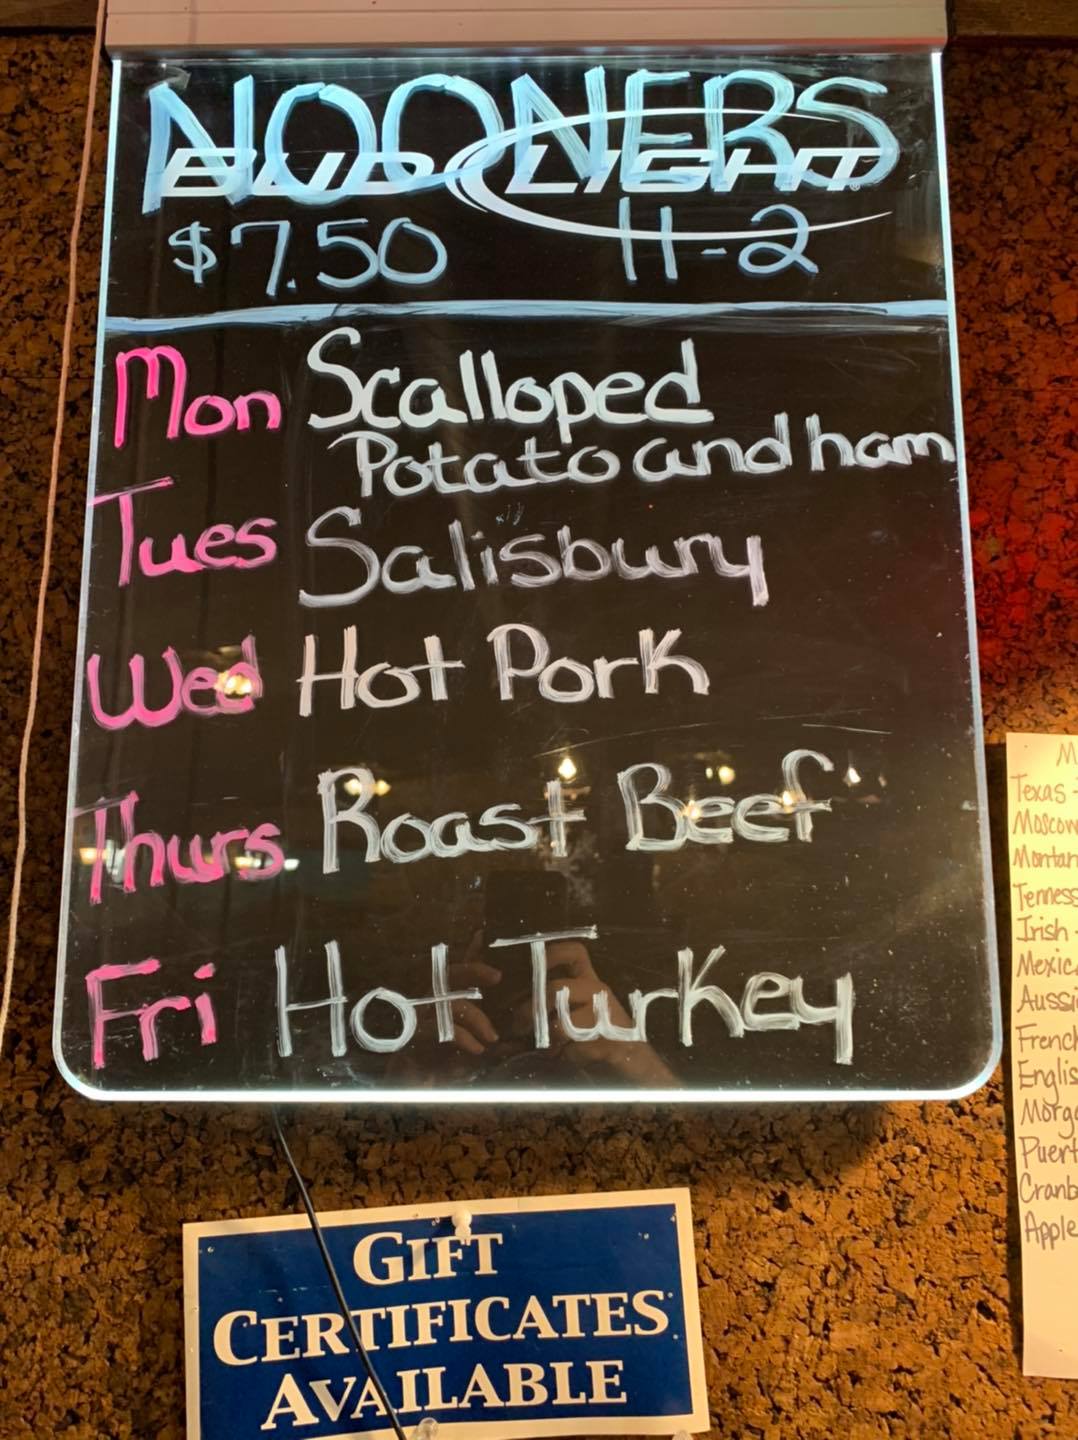 NOONERS
BUD LIGHT
$7.50 11-2
Mon Scalloped
Potato and ham
Tues Salisbury
Wed Hot Pork
Thurs Roast Beef
Fri Hot Turkey
GIFT
CERTIFICATES
AVAILABLE
M
Texas -
Moscow
Montan
Tenness
Irish -
Mexic
Aussi
French
Englis
Morga
Puert
Cranb
Apple